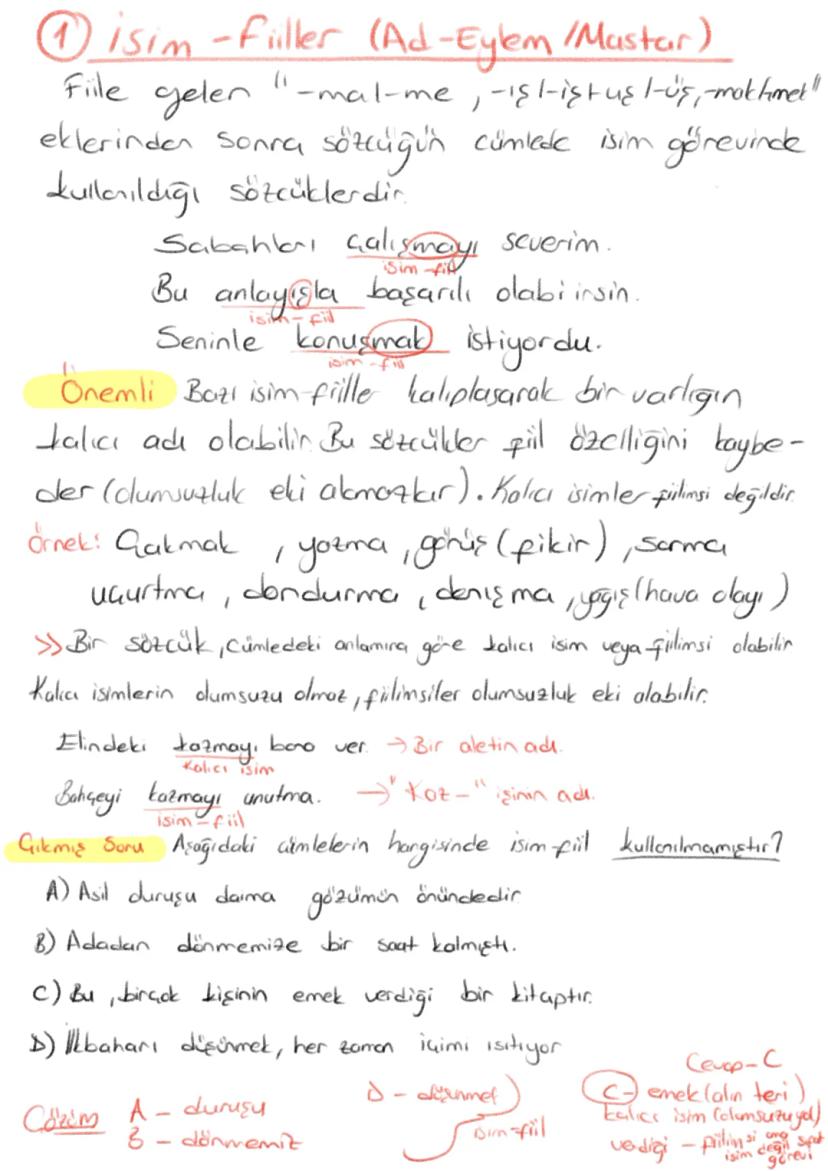 ① isim - Fiiller (Ad-Eylem / Mastar)
Fiile gelen "-ma/-me, -ış/-iş/-uş/-üş, -mak/-mek"
eklerinden sonra sözcüğün cümlede isim görevinde
kullanıldığı sözcüklerdir.
Sabahları çalışmayı severim.
isim-fiil
Bu anlayışla başarılı olabilirsin.
isim-fiil
Seninle konuşmak istiyordu.
isim-fiil
Önemli Bazı isim-fiiller kalıplaşarak bir varlığın
kalıcı adı olabilir. Bu sözcükler fiil özelliğini kaybe-
der (olumsuzluk eki alamazlar). Kalıcı isimler fiilimsi değildir.
Örnek: Çakmak, yazma, görüş (fikir), sarma
uçurtma, dondurma, danışma, yağış (hava olayı)
>> Bir sözcük, cümledeki anlamına göre kalıcı isim veya fiilimsi olabilir
Kalıcı isimlerin olumsuzu olmaz, fiilimsiler olumsuzluk eki alabilir.
Elindeki kazmayı bana ver. → Bir aletin adı.
Kalıcı isim
Bahçeyi kazmayı unutma. → "Kaz-" işinin adı.
isim-fiil
Çıkmış Soru Aşağıdaki cümlelerin hangisinde isim-fiil kullanılmamıştır?
A) Asil duruşu daima gözümün önündedir
B) Adadan dönmemize bir saat kalmıştı.
C) Bu, birçok kişinin emek verdiği bir kitaptır.
D) İlkbaharı düşünmek, her zaman içimi ısıtıyor
Cevap-C
Çözüm A - duruşu
B - dönmemiz
D - düşünmek
isim-fiil
C- emek (alın teri)
kalıcı isim (olumsuzu yok)
verdiği - fiilimsi ama isim değil sıfat görevi